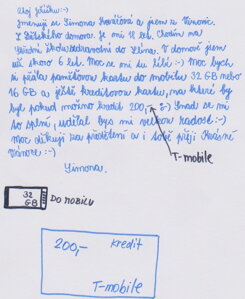 Ahoj Ježíšku :-)
Jmenuji se Simona Kovářová a jsem z Vizovic.
Z Dětského domova. Je mi 18 let. Chodím na
Střední školu zdravotní do Zlína. V domově jsem
už skoro 6 let. Moc se mi tu líbí :-) Moc bych
si přála paměťovou kartu do mobilu 32 GB nebo
16 GB a ještě kreditovou kartu, na které by
byl pokud možno kredit 200,- :-) Snad se mi
to splní, udělal bys mi velkou radost :-)
Moc děkuji za přečtení a i tobě přeji krásné
Vánoce :-)
Simona.
T-mobile
32
GB
DO MOBILU
200,- kredit
T-mobile